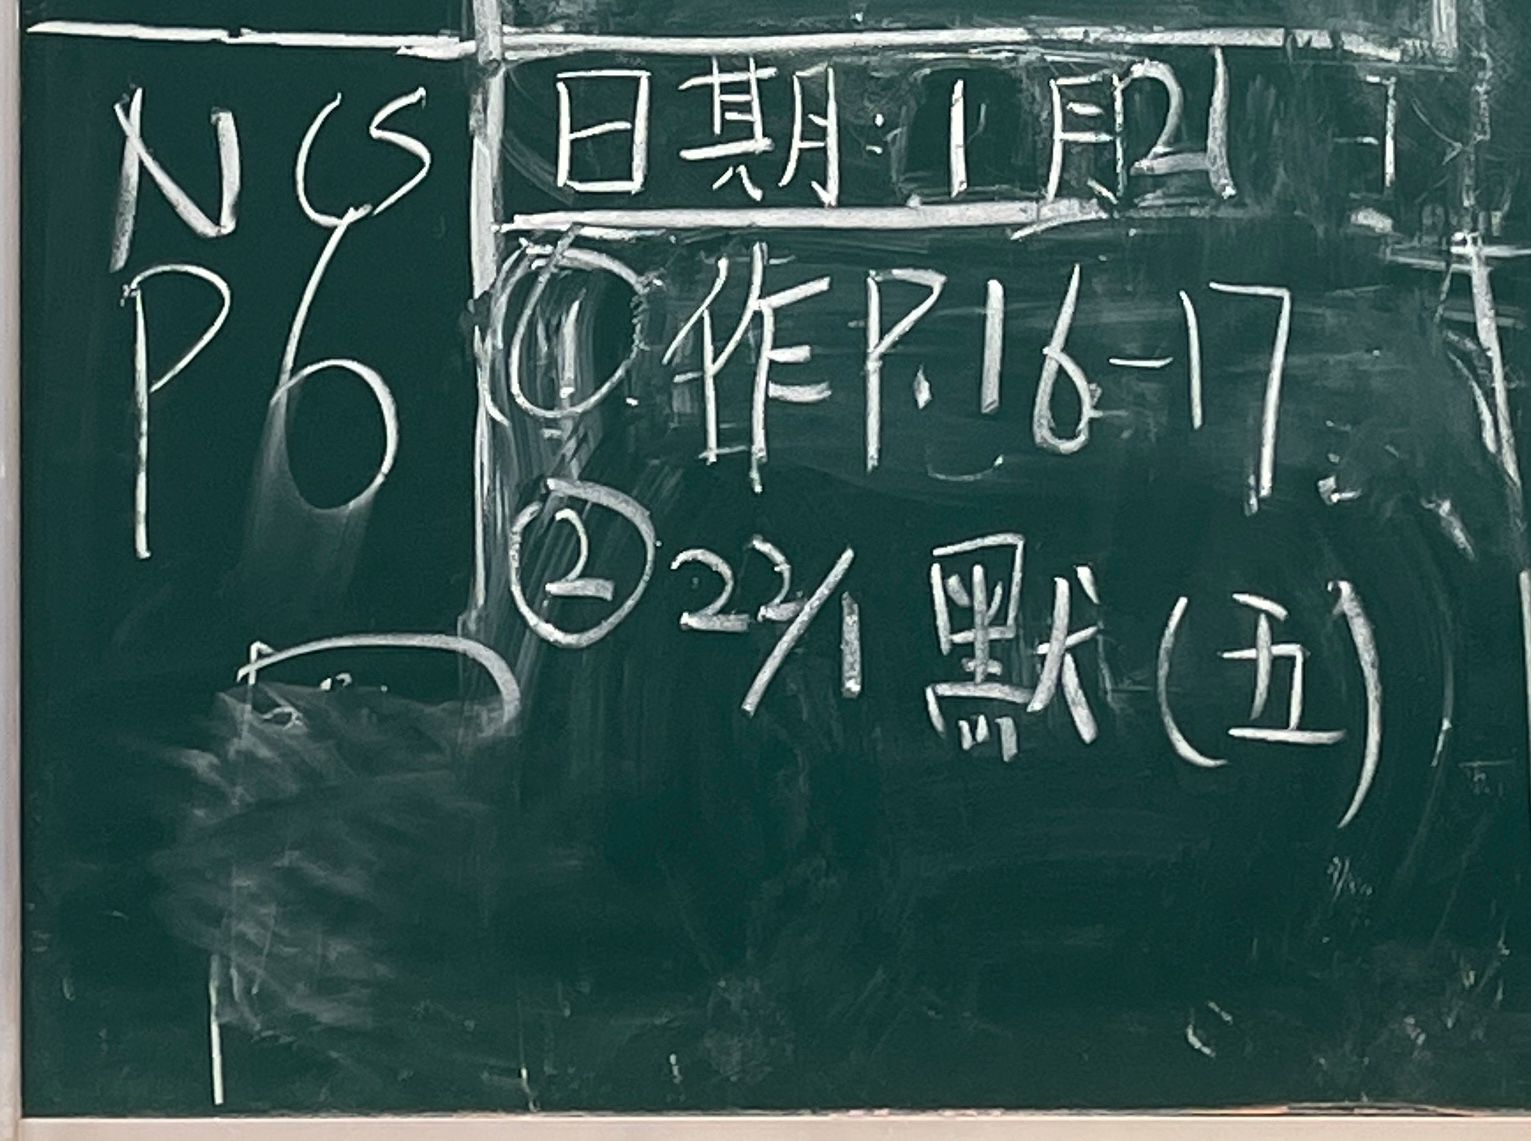 NCS
P6
日期:1月21日
① 作P.16-17
② 22/1 默(五)